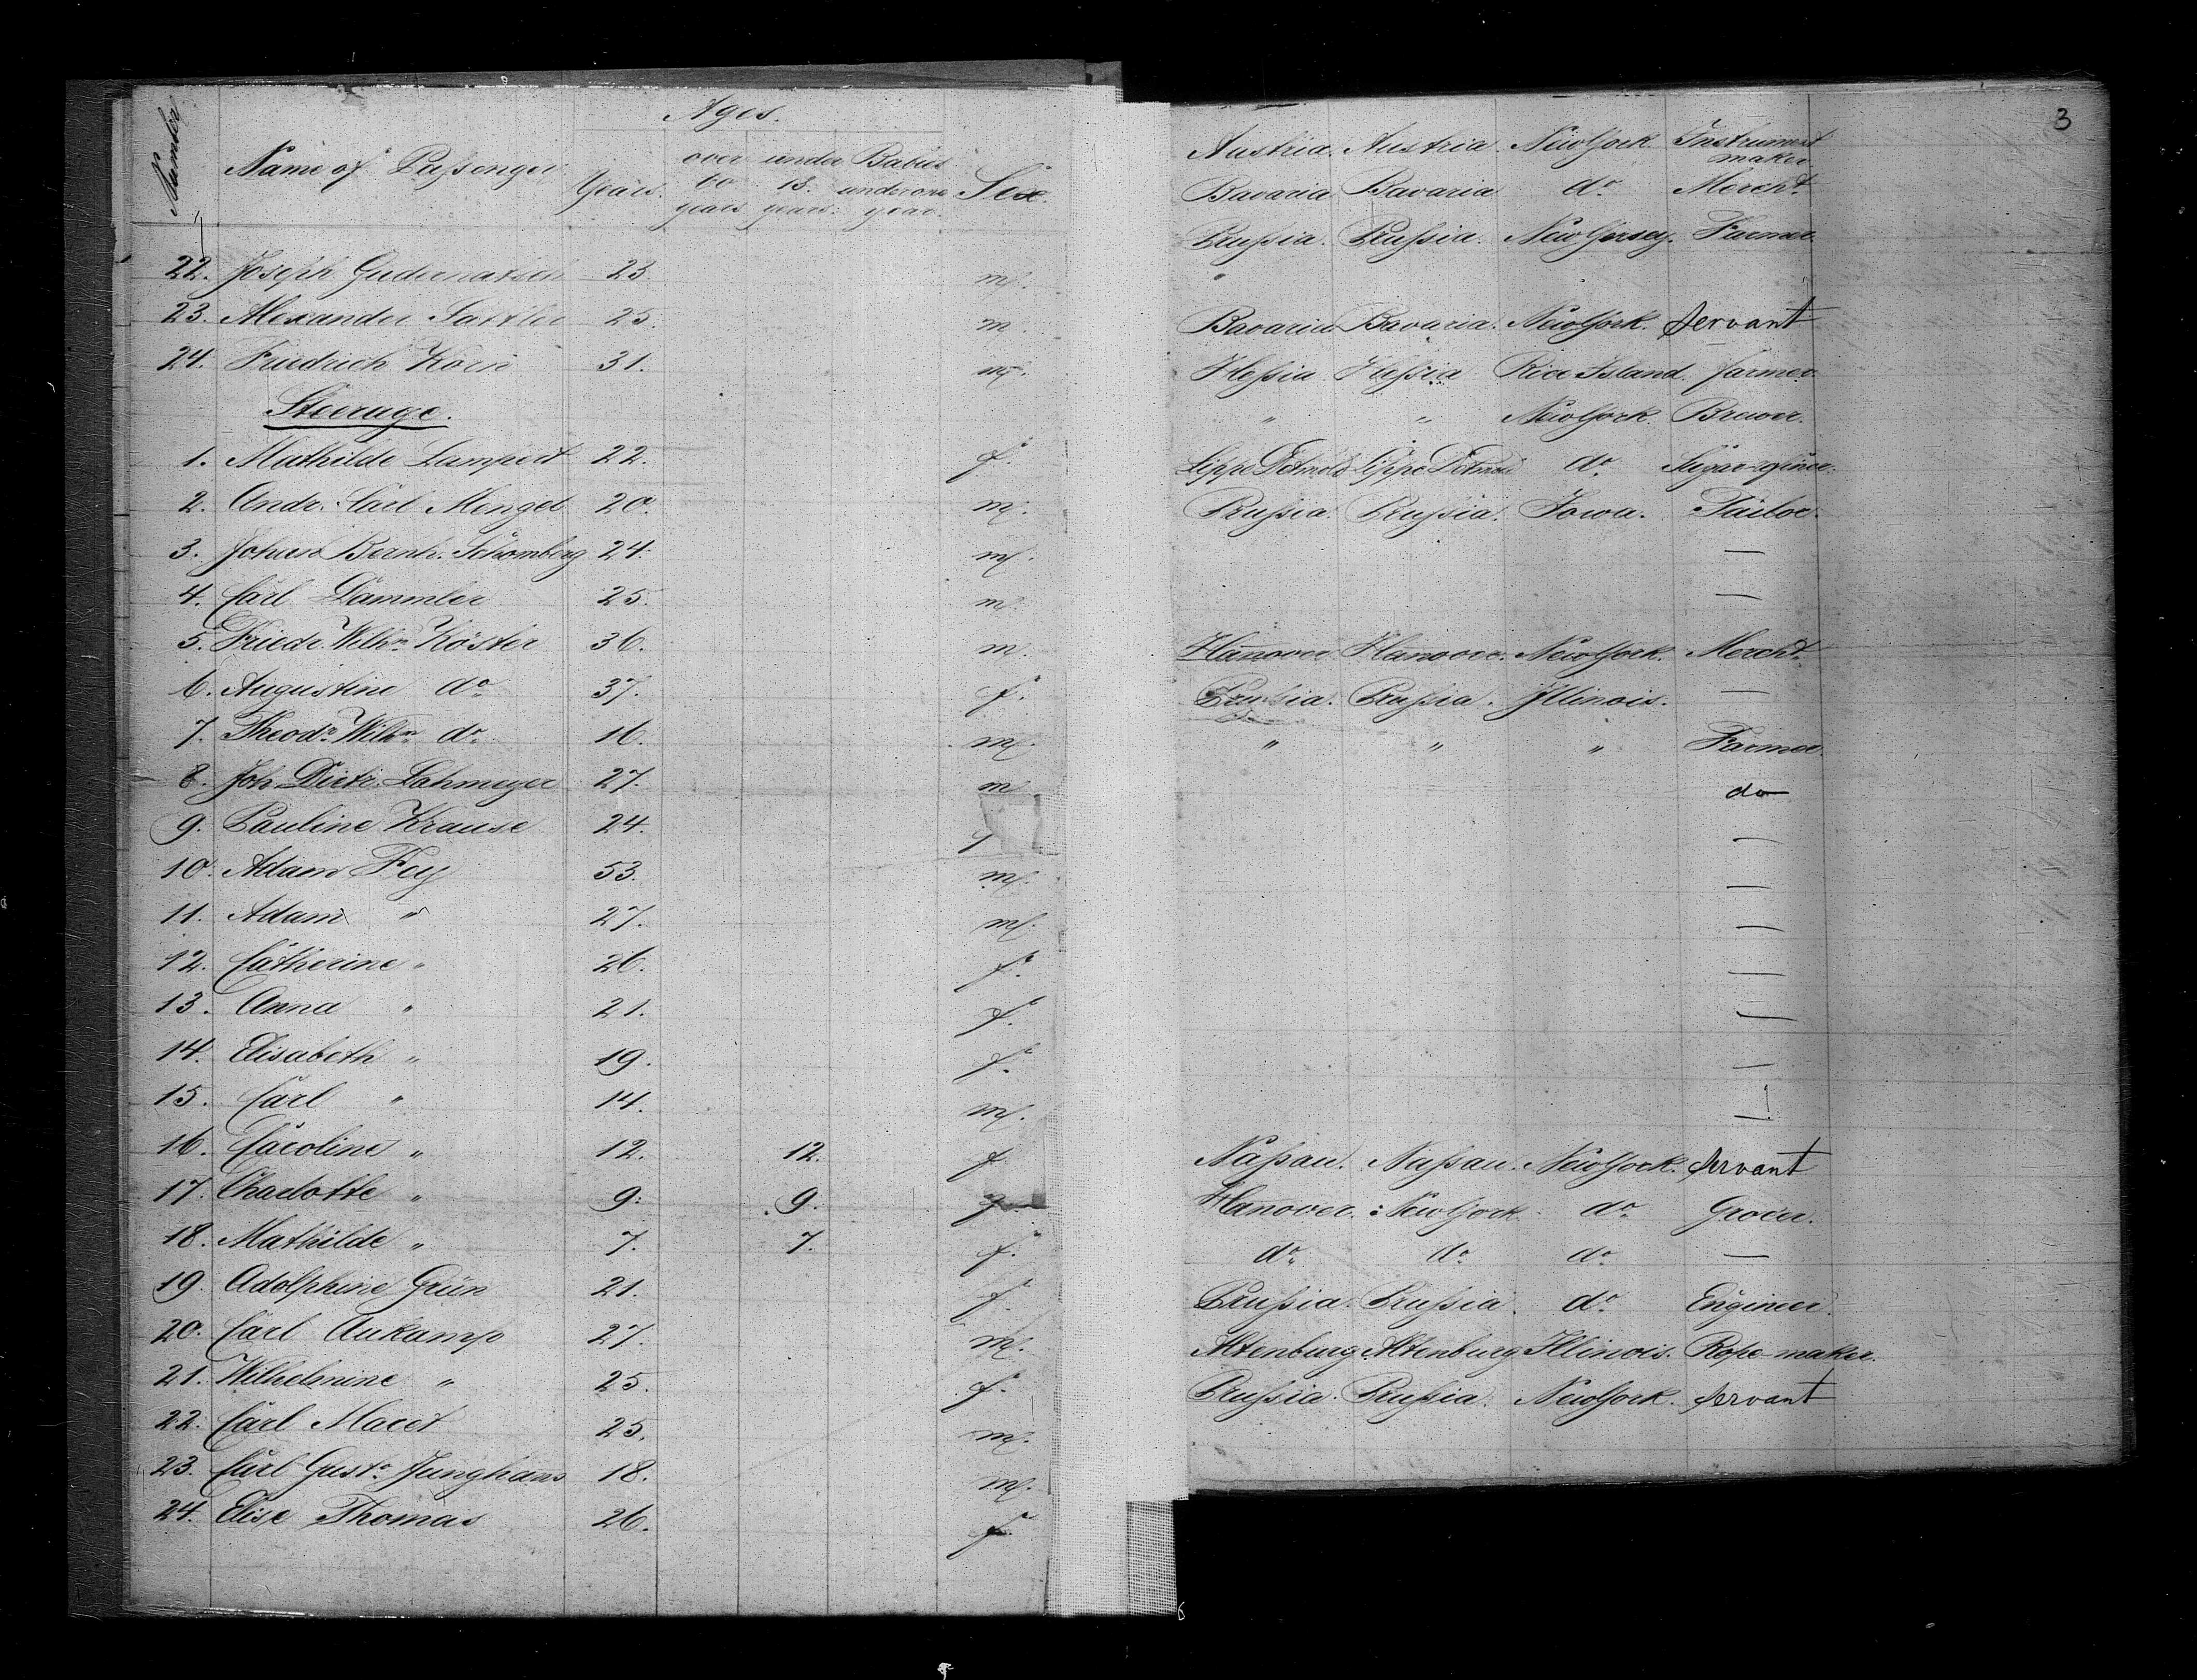 3
Number
Name of Paſsenger
Ages.
Years.
over 60 years
under 13 years.
Babies under one year.
Sex.
22. Joseph 23. m.
23. Alexander Sattler 25. m.
24. Friedrich Korn 31. m.
Steerage.
1. Mathilde Lampert 22. f.
2. Andr. Carl Mengel 20. m.
3. Johan Bernh. Schomberg 24. m.
4. Carl Dammler 25. m.
5. Friedr. Wilhm Köster 36. m.
6. Augustine do 37. f.
7. Theodr Wilhm do 16. m.
8. Joh. Dietr. Lahmeyer 27. m
9. Pauline Krause 24.
10. Adam Fey 53. m.
11. Adam " 27. m.
12. Catherine " 26. f.
13. Anna " 21. f.
14. Elisabeth " 19. f.
15. Carl " 14. m.
16. Caroline " 12. 12. f
17. Charlotte " 9. 9. f
18. Mathilde " 7. 7. f.
19. Adolphine Grün 21. f.
20. Carl Aukamp 27. m.
21. Wilhelmine " 25. f.
22. Carl Macet 25. m.
23. Carl Gust. Junghans 18. m.
24. Elise Thomas 26. f.
Austria. Austria. New York Instrument
maker.
Bavaria Bavaria do Mercht
Pruſsia. Pruſsia. New Jersey. Farmer.
"
Bavaria Bavaria. New York. Servant
Heſsia Heſsia Rice Island. farmer.
" " New York. Brewer.
Lippe Detmold Lippe Detmold do Sugar refiner.
Pruſsia. Pruſsia. Iowa. Tailor.
—
—
Hanover Hanover. New York. Mercht
Prussia. Pruſsia. Illinois. —
" " " Farmer.
do
—
—
—
—
—
—
—
Naſsau. Naſsau. New York. Servant
Hanover. New York. do Grocer.
do do do —
Pruſsia. Pruſsia. do Engineer.
Altenburg Altenburg Illinois. Rope maker.
Pruſsia. Pruſsia. New York. Servant